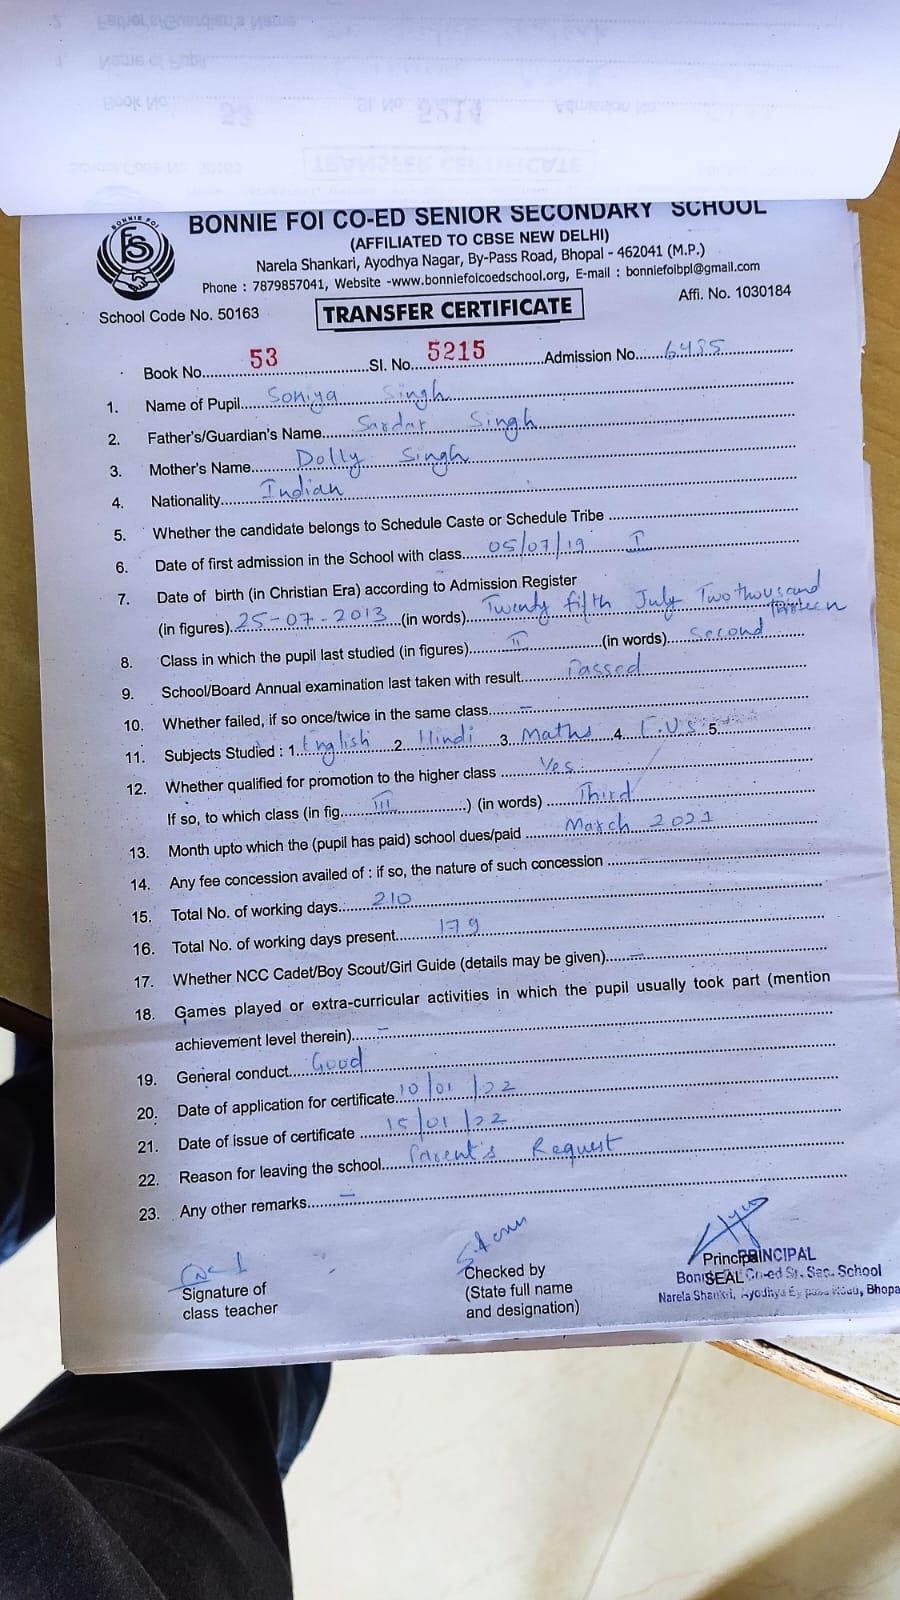 BONNIE FOI CO-ED SENIOR SECONDARY SCHOOL
(AFFILIATED TO CBSE NEW DELHI)
Narela Shankari, Ayodhya Nagar, By-Pass Road, Bhopal - 462041 (M.P.)
Phone : 7879857041, Website -www.bonniefoicoedschool.org, E-mail : bonniefoibpl@gmail.com
School Code No. 50163 TRANSFER CERTIFICATE Affi. No. 1030184
Book No. 53 Sl. No. 5215 Admission No. 6435
1. Name of Pupil Soniya Singh
2. Father's/Guardian's Name Sardar Singh
3. Mother's Name Dolly Singh
4. Nationality Indian
5. Whether the candidate belongs to Schedule Caste or Schedule Tribe
6. Date of first admission in the School with class 05/07/19 I
7. Date of birth (in Christian Era) according to Admission Register
(in figures) 25-07-2013 (in words) Twenty fifth July Two thousand
Thirteen
8. Class in which the pupil last studied (in figures) II (in words) Second
9. School/Board Annual examination last taken with result Passed
10. Whether failed, if so once/twice in the same class –
11. Subjects Studied : 1. English 2. Hindi 3. Maths 4. E.V.S 5.
12. Whether qualified for promotion to the higher class Yes
If so, to which class (in fig. III ) (in words) Third
13. Month upto which the (pupil has paid) school dues/paid March 2021
14. Any fee concession availed of : if so, the nature of such concession –
15. Total No. of working days 210
16. Total No. of working days present 179
17. Whether NCC Cadet/Boy Scout/Girl Guide (details may be given) –
18. Games played or extra-curricular activities in which the pupil usually took part (mention
achievement level therein) –
19. General conduct Good
20. Date of application for certificate 10/01/22
21. Date of issue of certificate 15/01/22
22. Reason for leaving the school Parent's Request
23. Any other remarks –
Signature of
class teacher
Checked by
(State full name
and designation)
Principal PRINCIPAL
SEAL Co-ed Sr. Sec. School
Narela Shankri, Ayodhya By pass Road, Bhopa